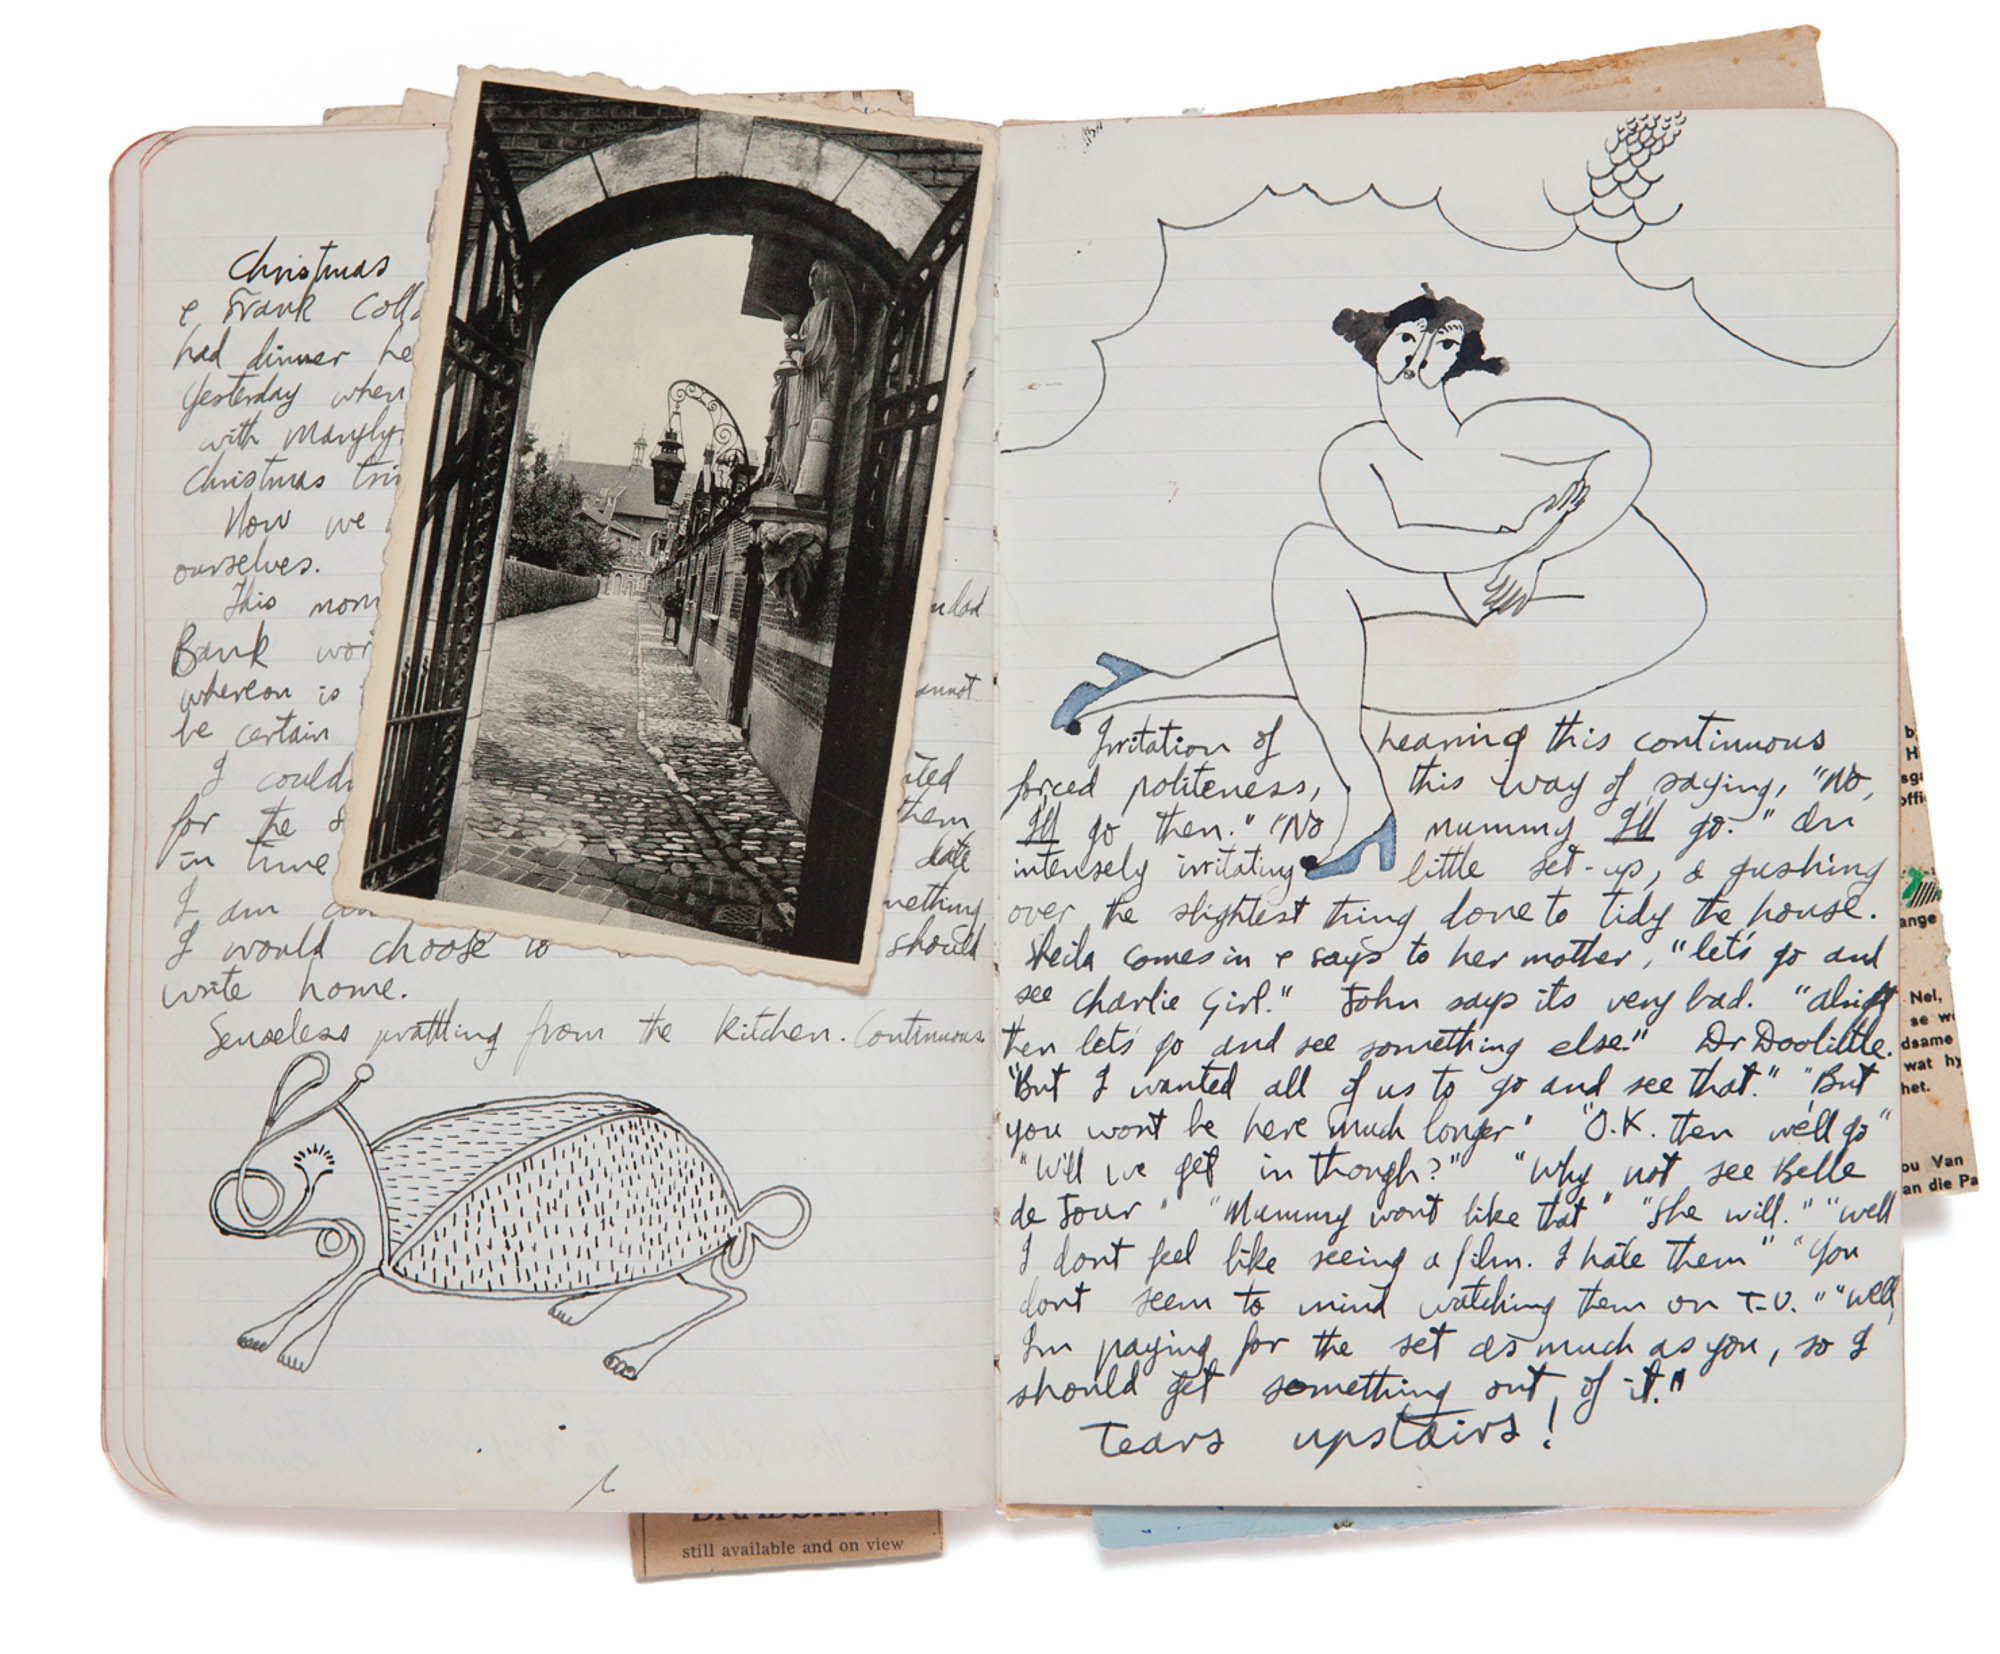 Christmas
& Frank
had dinner
Yesterday when
with
Christmas
Now we
ourselves.
This
Bank
whereon is
be certain
I
for the
in time
them
I am
I would choose to should
write home.
Senseless prattling from the kitchen. Continuous
Irritation of hearing this continuous
forced politeness, this way of saying, "No,
I'll go then." "No mummy I'll go." An
intensely irritating little set-up, a gushing
over the slightest thing done to tidy the house.
Sheila comes in & says to her mother, "let's go and
see Charlie Girl." John says its very bad. "alright
then let's go and see something else." Dr Doolittle.
"But I wanted all of us to go and see that." "But
you wont be here much longer" "O.K. then we'll go"
"Will we get in though?" "Why not see Belle
de Jour" "Mummy wont like that" "She will." "well
I dont feel like seeing a film. I hate them" "You
dont seem to mind watching them on T.V." "Well,
I'm paying for the set as much as you, so I
should get something out of it."
Tears upstairs!
still available and on view
ange
Nel,
se
dsame
wat hy
het.
ou Van
an die Pa